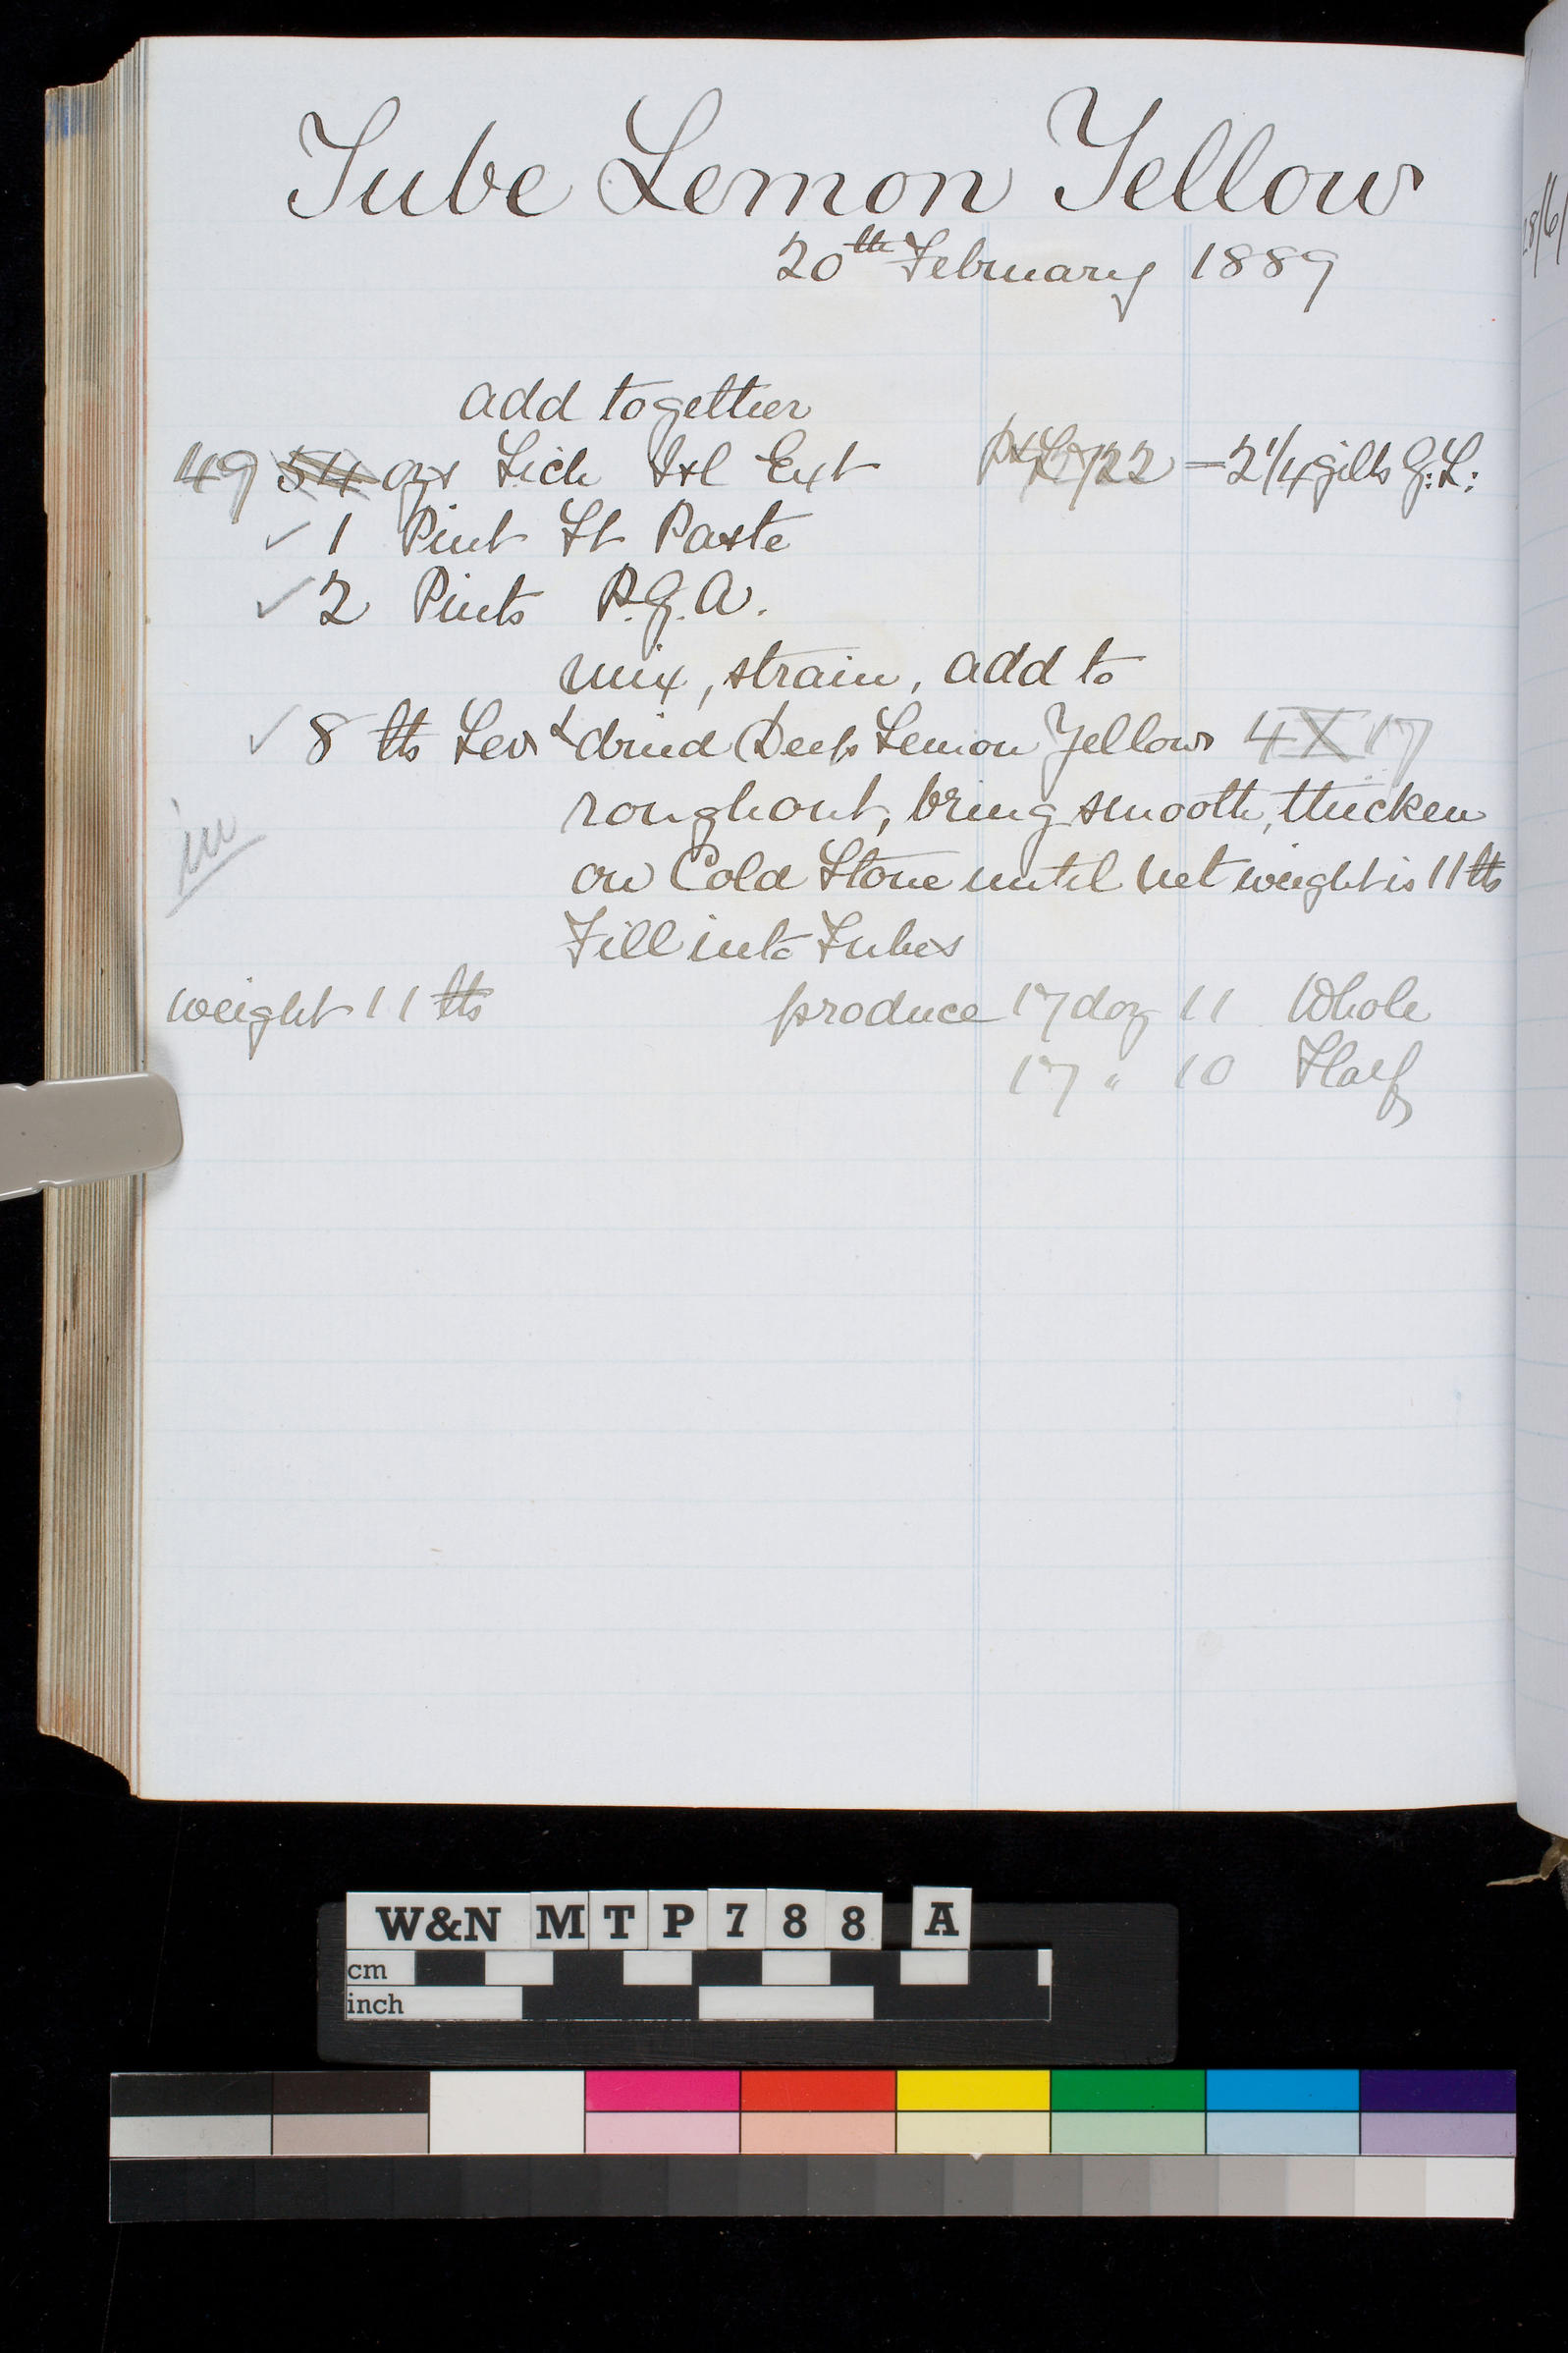 Tube Lemon Yellow
20th February 1889
add together
49 54 ozs Lich Isl Ext 22 = 2 1/4 gills G: L:
✓ 1 Pint St Paste
✓ 2 Pints P.G.A.
mix, strain, add to
✓ 8 lbs Lev & dried Deep Lemon Yellow 4 X 17
rough out, bring smooth, thicken
in
on Cold Stone until net weight is 11 lbs
Fill into Tubes
weight 11 lbs produce 17 doz 11 Whole
17 " 10 Half
W&N MTP788 A
cm
inch